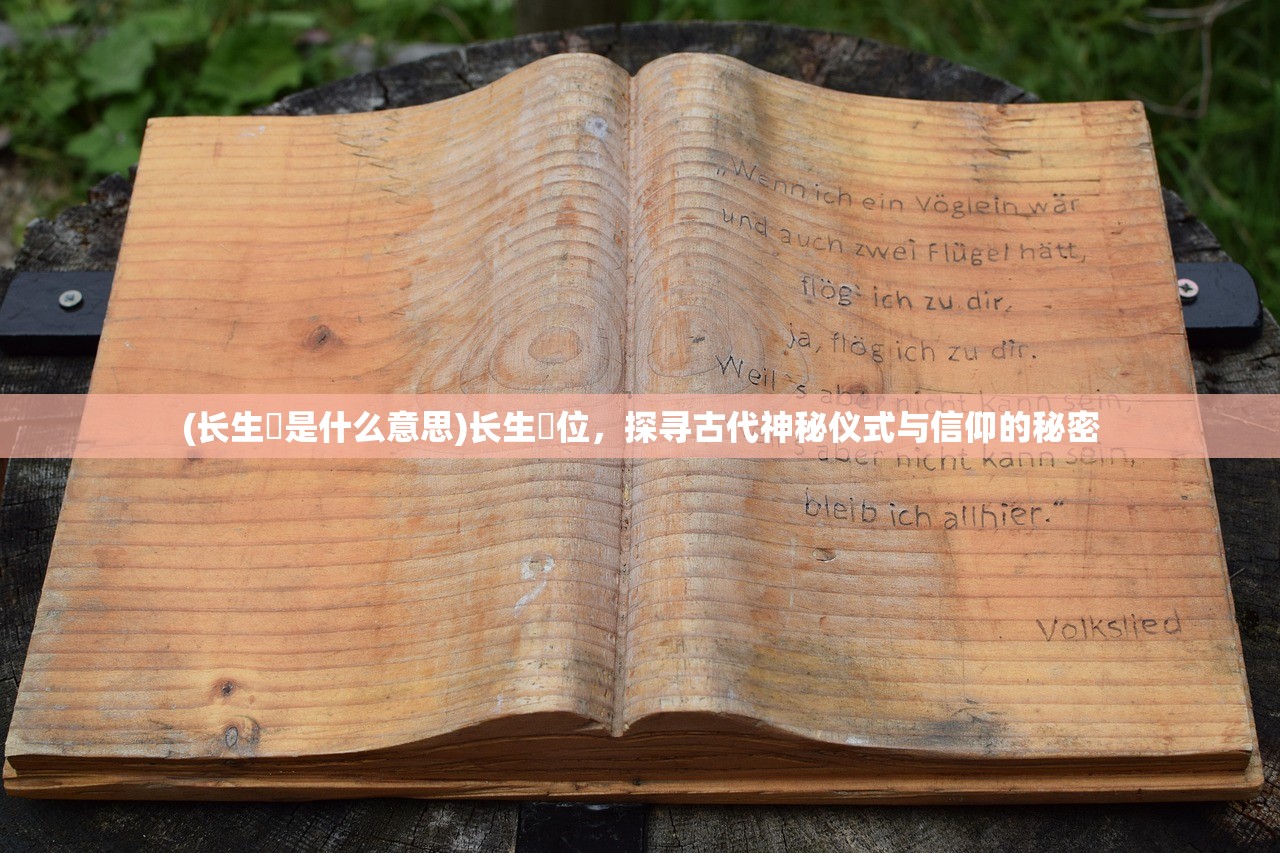 „Wenn ich ein Vöglein wär
und auch zwei Flügel hätt,
flög' ich zu dir,
ja, flög ich zu dir.
Weil 's aber nicht kann sein,
(长生是什么意思)长生位，探寻古代神秘仪式与信仰的秘密
's aber nicht kann sein,
bleib ich allhier.“
Volkslied